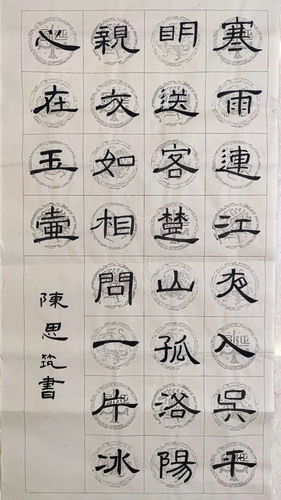 寒雨連江夜入吳平
明送客楚山孤洛陽
親友如相問一片冰
心在玉壺
陳思筑書